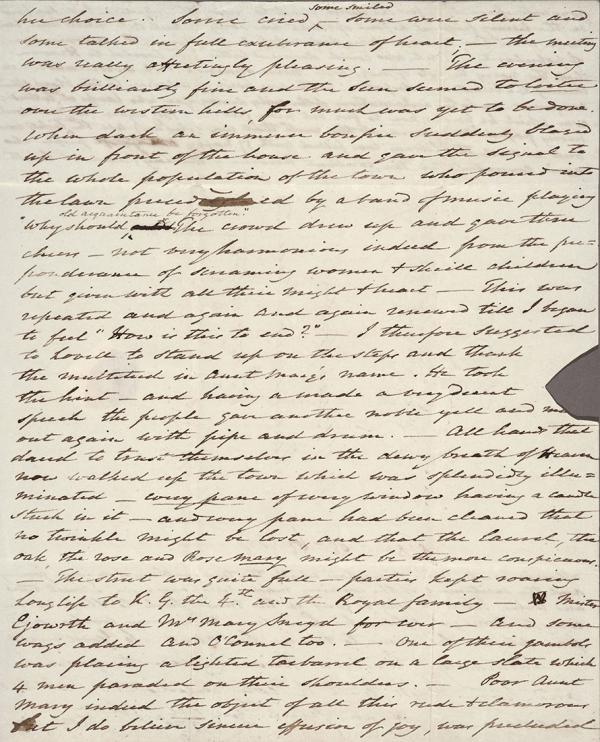 her choice.. Some cried, some smiled some were silent and
some talked in full exuberance of heart, — the meeting
was really affectingly pleasing. — The evening
was brilliantly fine and the sun seemed to loiter
over the western hills for much was yet to be done.
When dark an immense bonfire suddenly blazed
up in front of the house and gave the signal to
the whole population of the town who poured into
the lawn preceded by a band of music playing
"Why should old acquaintance be forgotten". The crowd drew up and gave three
cheers — not very harmonious indeed from the pre-
ponderance of screaming women & shrill children
but given with all their might & heart — This was
repeated and again and again renewed till I began
to feel "How is this to end?" — I therefore suggested
to Lovell to stand up on the steps and thank
the multitude in Aunt Mary's name. He took
the hint — and having a made a very decent
speech the people gave another noble yell and
out again with pipe and drum. — All hands that
dared to trust themselves in the dewy breath of Heaven
now walked up the town which was splendidly illu=
minated — every pane of every window having a candle
stuck in it — and every pane had been cleaned that
no twinkle might be lost, and that the laurel, the
oak, the rose and Rose mary might be the more conspicuous.
— The street was quite full — parties kept roaring
long life to K. G. the 4th and the Royal family — Mister
Ejoworth and Mrs Mary Sneyd for ever — and some
wags added and O'Connel too. — One of their gambols
was placing a lighted tarbarrel on a large slate which
4 men paraded on their shoulders. — Poor Aunt
Mary indeed the object of all this rude & clamorous
but I do believe sincere effusion of joy, was precluded